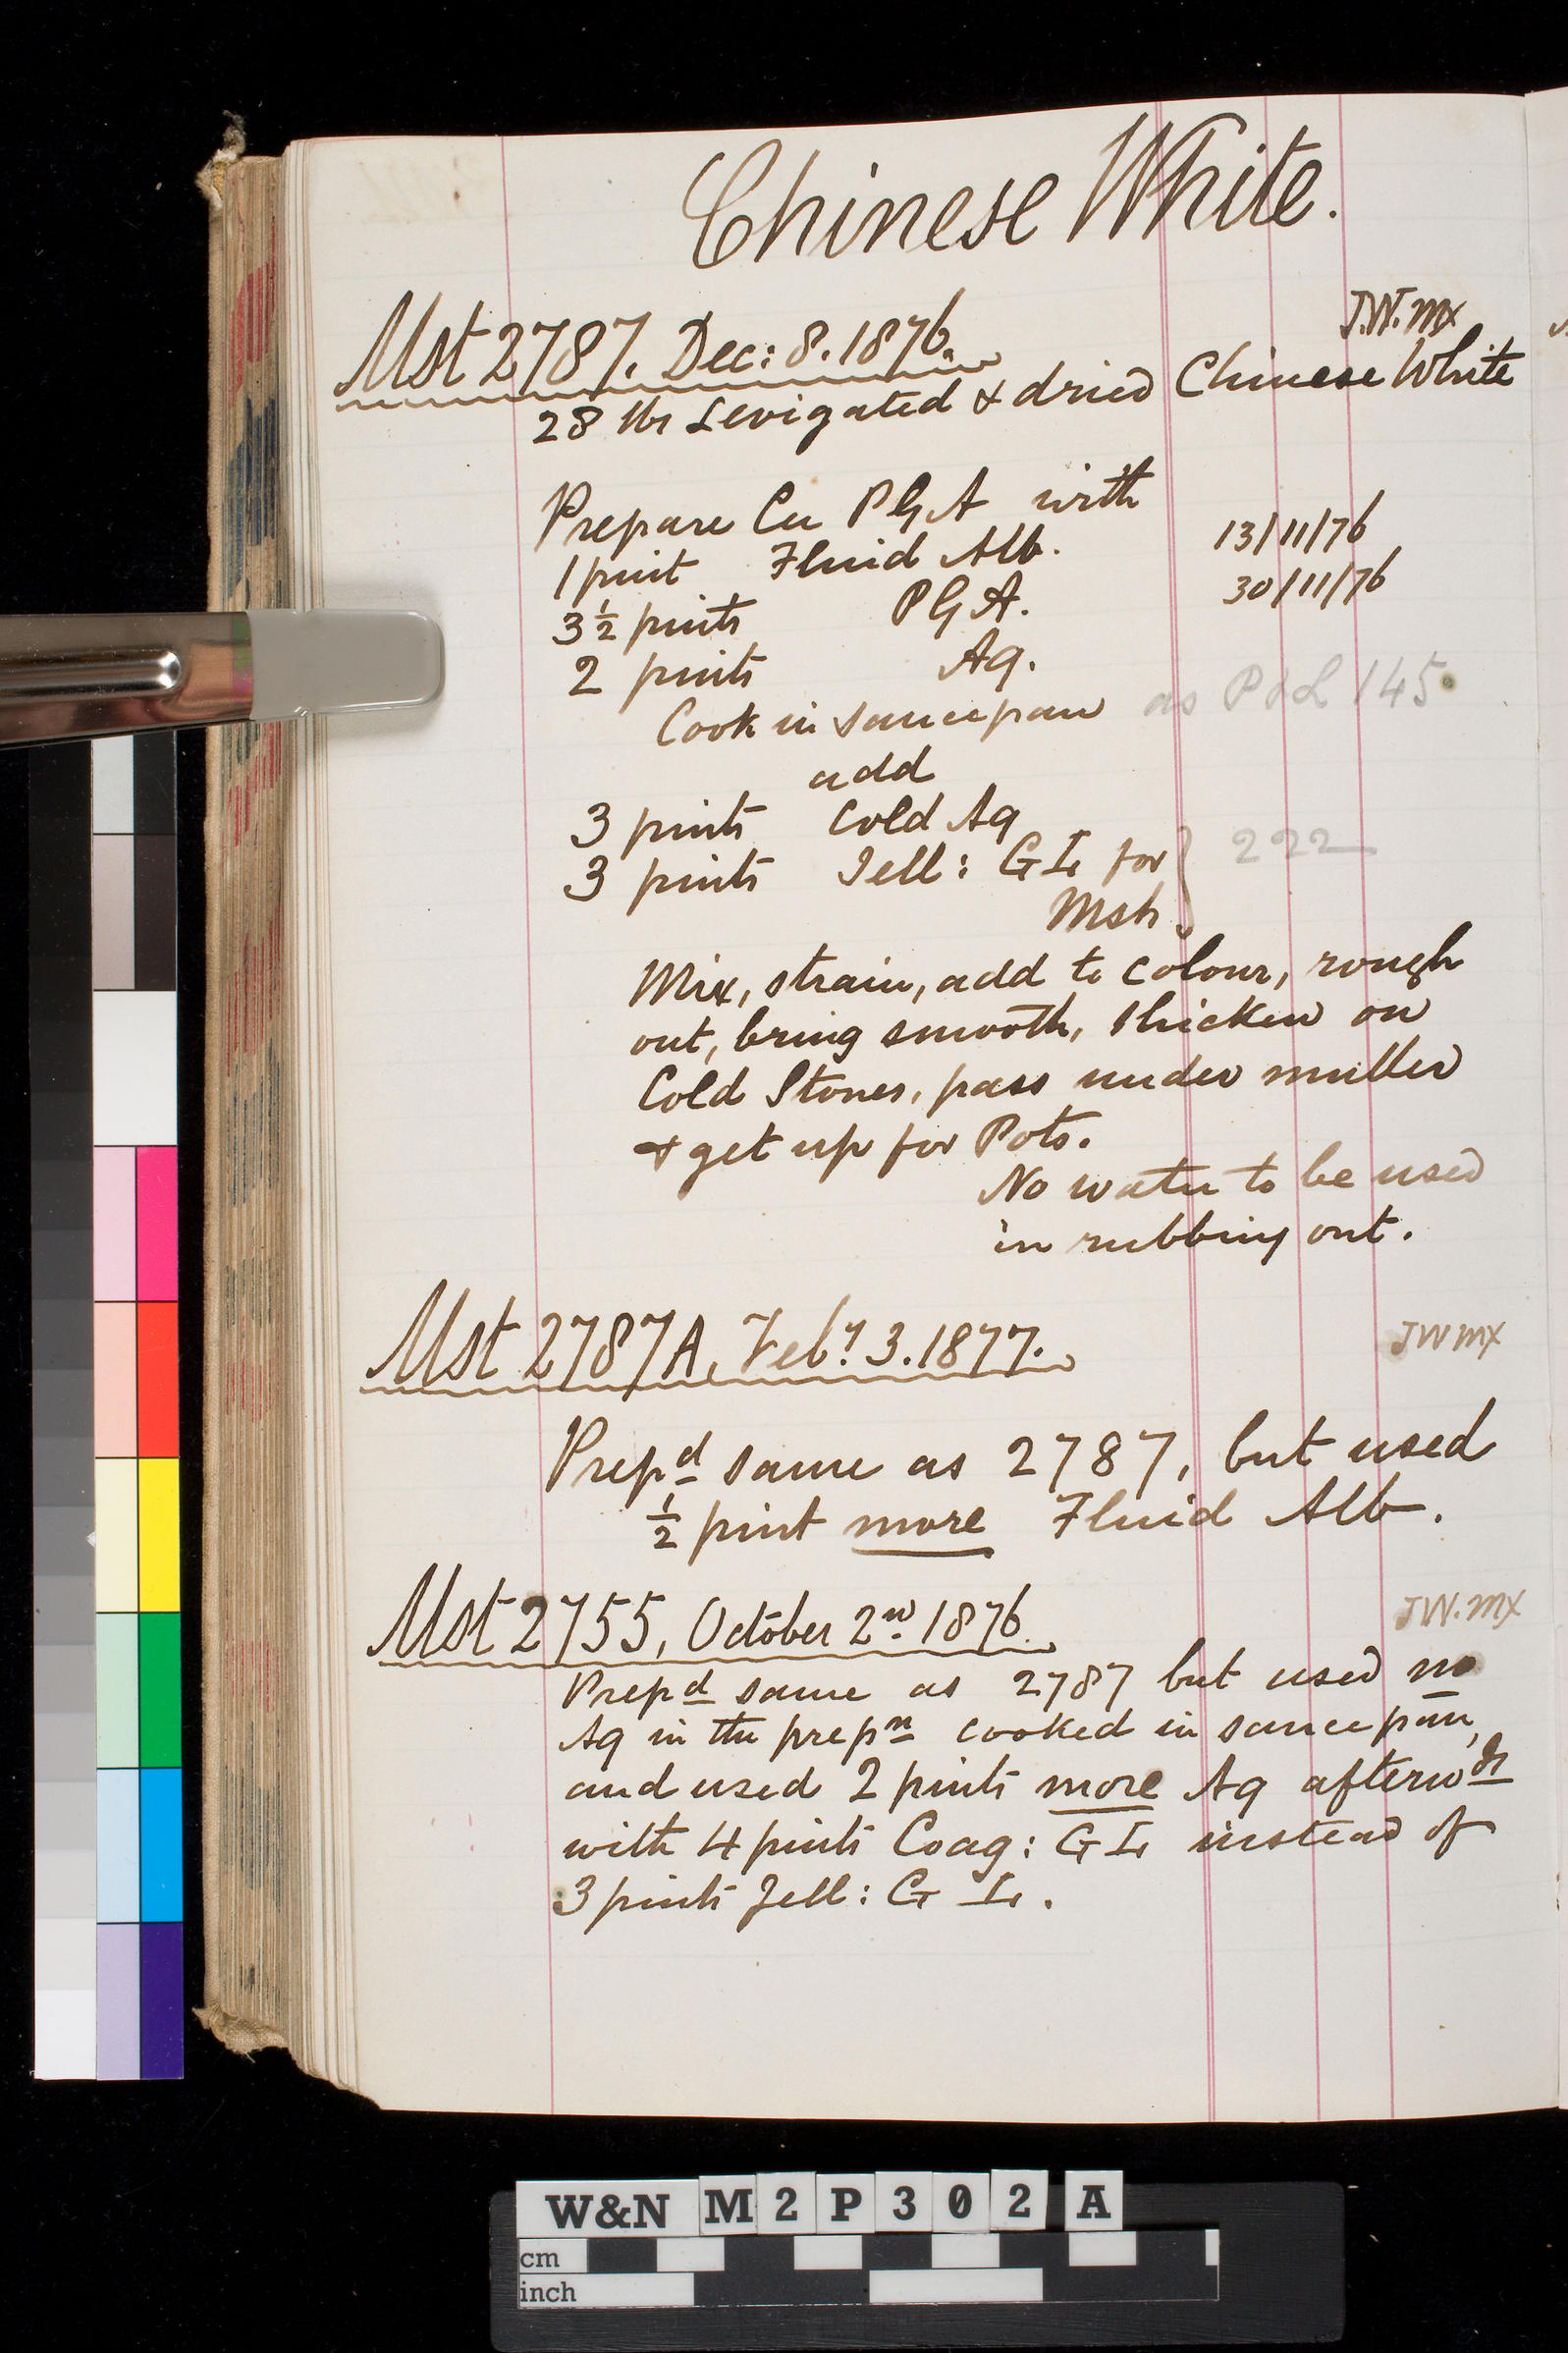 Chinese White.
J.W. mx
Mst 2787, Dec: 8. 1876.
28 lbs Levigated & dried Chinese White
Prepare Cu PGA with
1 pint Fluid Alb. 13/11/76
3 1/2 pints PGA. 30/11/76
2 pints Aq.
Cook in saucepan as P&L 145
add
3 pints Cold Aq
3 pints Jell: G Tr for } 222
Msh
Mix, strain, add to colour, rough
out, bring smooth, thicken on
Cold Stones, pass under muller
& get up for Pots.
No water to be used
in rubbing out.
Mst 2787A, Feby. 3. 1877. JW mx
Prepd same as 2787, but used
1/2 pint more Fluid Alb.
Mst 2755, October 2nd 1876. JW. mx
Prepd same as 2787 but used no
Aq in the prepn cooked in saucepan,
and used 2 pints more Aq afterwds
with 4 pints Coag: G Tr instead of
3 pints Jell: G Tr.
W&N M2P302A
cm
inch